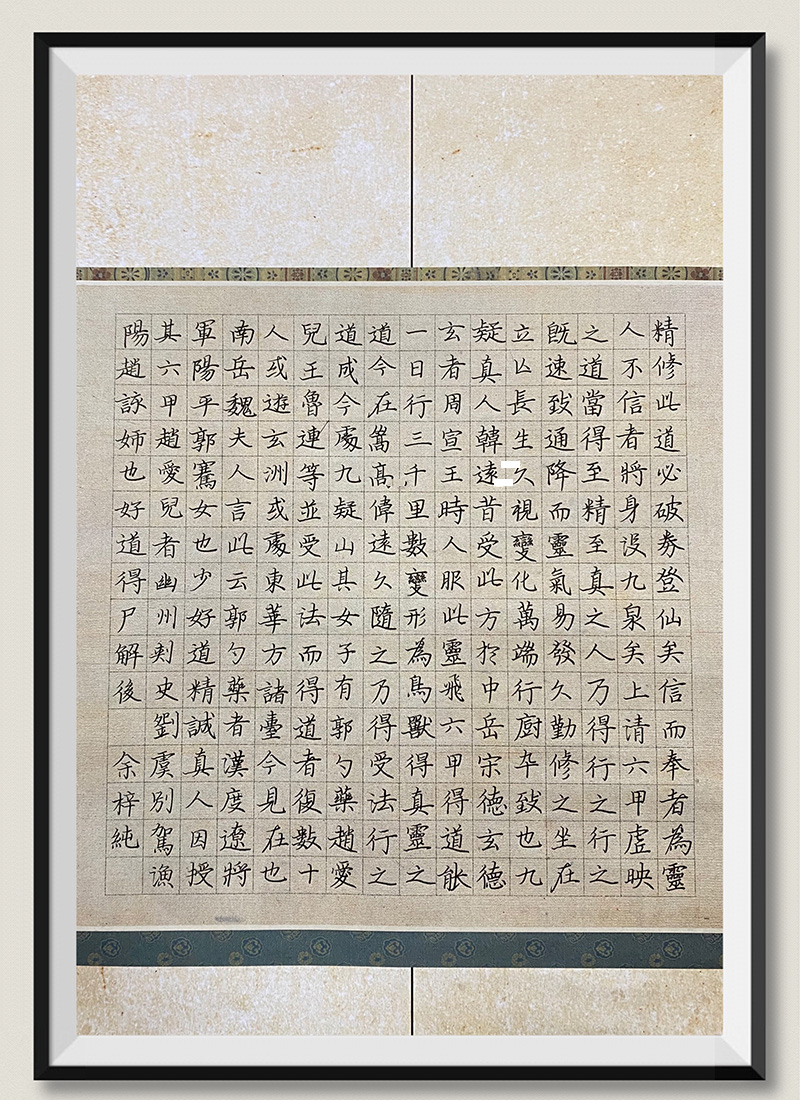 精修此道必破券登仙矣信而奉者為靈
人不信者將身没九泉矣上清六甲虛映
之道當得至精至真之人乃得行之行之
既速致通降而靈氣易發久勤修之坐在
立亾長生久視變化萬端行厨卒致也九
疑真人韓遠昔受此方於中岳宋德玄德
玄者周宣王時人服此靈飛六甲得道能
一日行三千里數變形為鳥獸得真靈之
道今在嵩高偉遠久隨之乃得受法行之
道成今處九疑山其女子有郭勺藥趙愛
兒王魯連等並受此法而得道者復數十
人或遊玄洲或處東華方諸臺今見在也
南岳魏夫人言此云郭勺藥者漢度遼將
軍陽平郭騫女也少好道精誠真人因授
其六甲趙愛兒者幽州刾史劉虞別駕漁
陽趙詠姉也好道得尸解後 余梓純